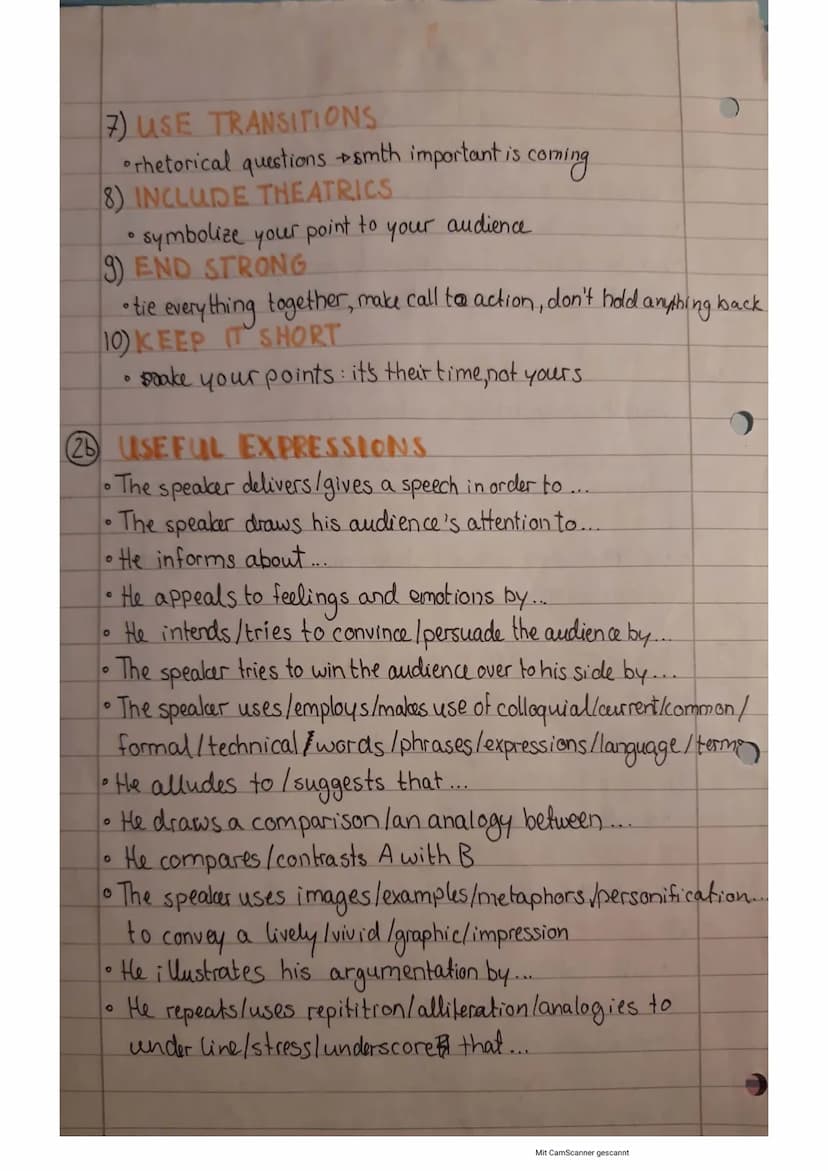 7) USE TRANSITIONS
• rhetorical questions → smth important is coming
8) INCLUDE THEATRICS
• symbolize your point to your audience
9) END STRONG
• tie everything together, make call to action, don't hold anything back
10) KEEP IT SHORT
• make your points: it's their time, not yours
2b USEFUL EXPRESSIONS
• The speaker delivers/gives a speech in order to ...
• The speaker draws his audience's attention to...
• He informs about...
• He appeals to feelings and emotions by...
• He intends/tries to convince/persuade the audience by...
• The speaker tries to win the audience over to his side by...
• The speaker uses/employs/makes use of colloquial/current/common/
formal/technical/words/phrases/expressions/language/terms
• He alludes to/suggests that...
• He draws a comparison/an analogy between...
• He compares/contrasts A with B
• The speaker uses images/examples/metaphors/personification...
to convey a lively/vivid/graphic/impression
• He illustrates his argumentation by...
• He repeats/uses repititron/alliteration/analogies to
under line/stress/underscore that...
Mit CamScanner gescannt